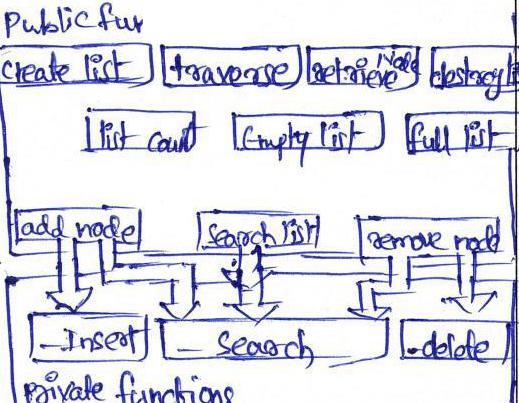 Public fun
create list traverse retrieve Node destroy li
list count Empty list full list
add node Search list remove node
_Insert _ Search _delete
private functions